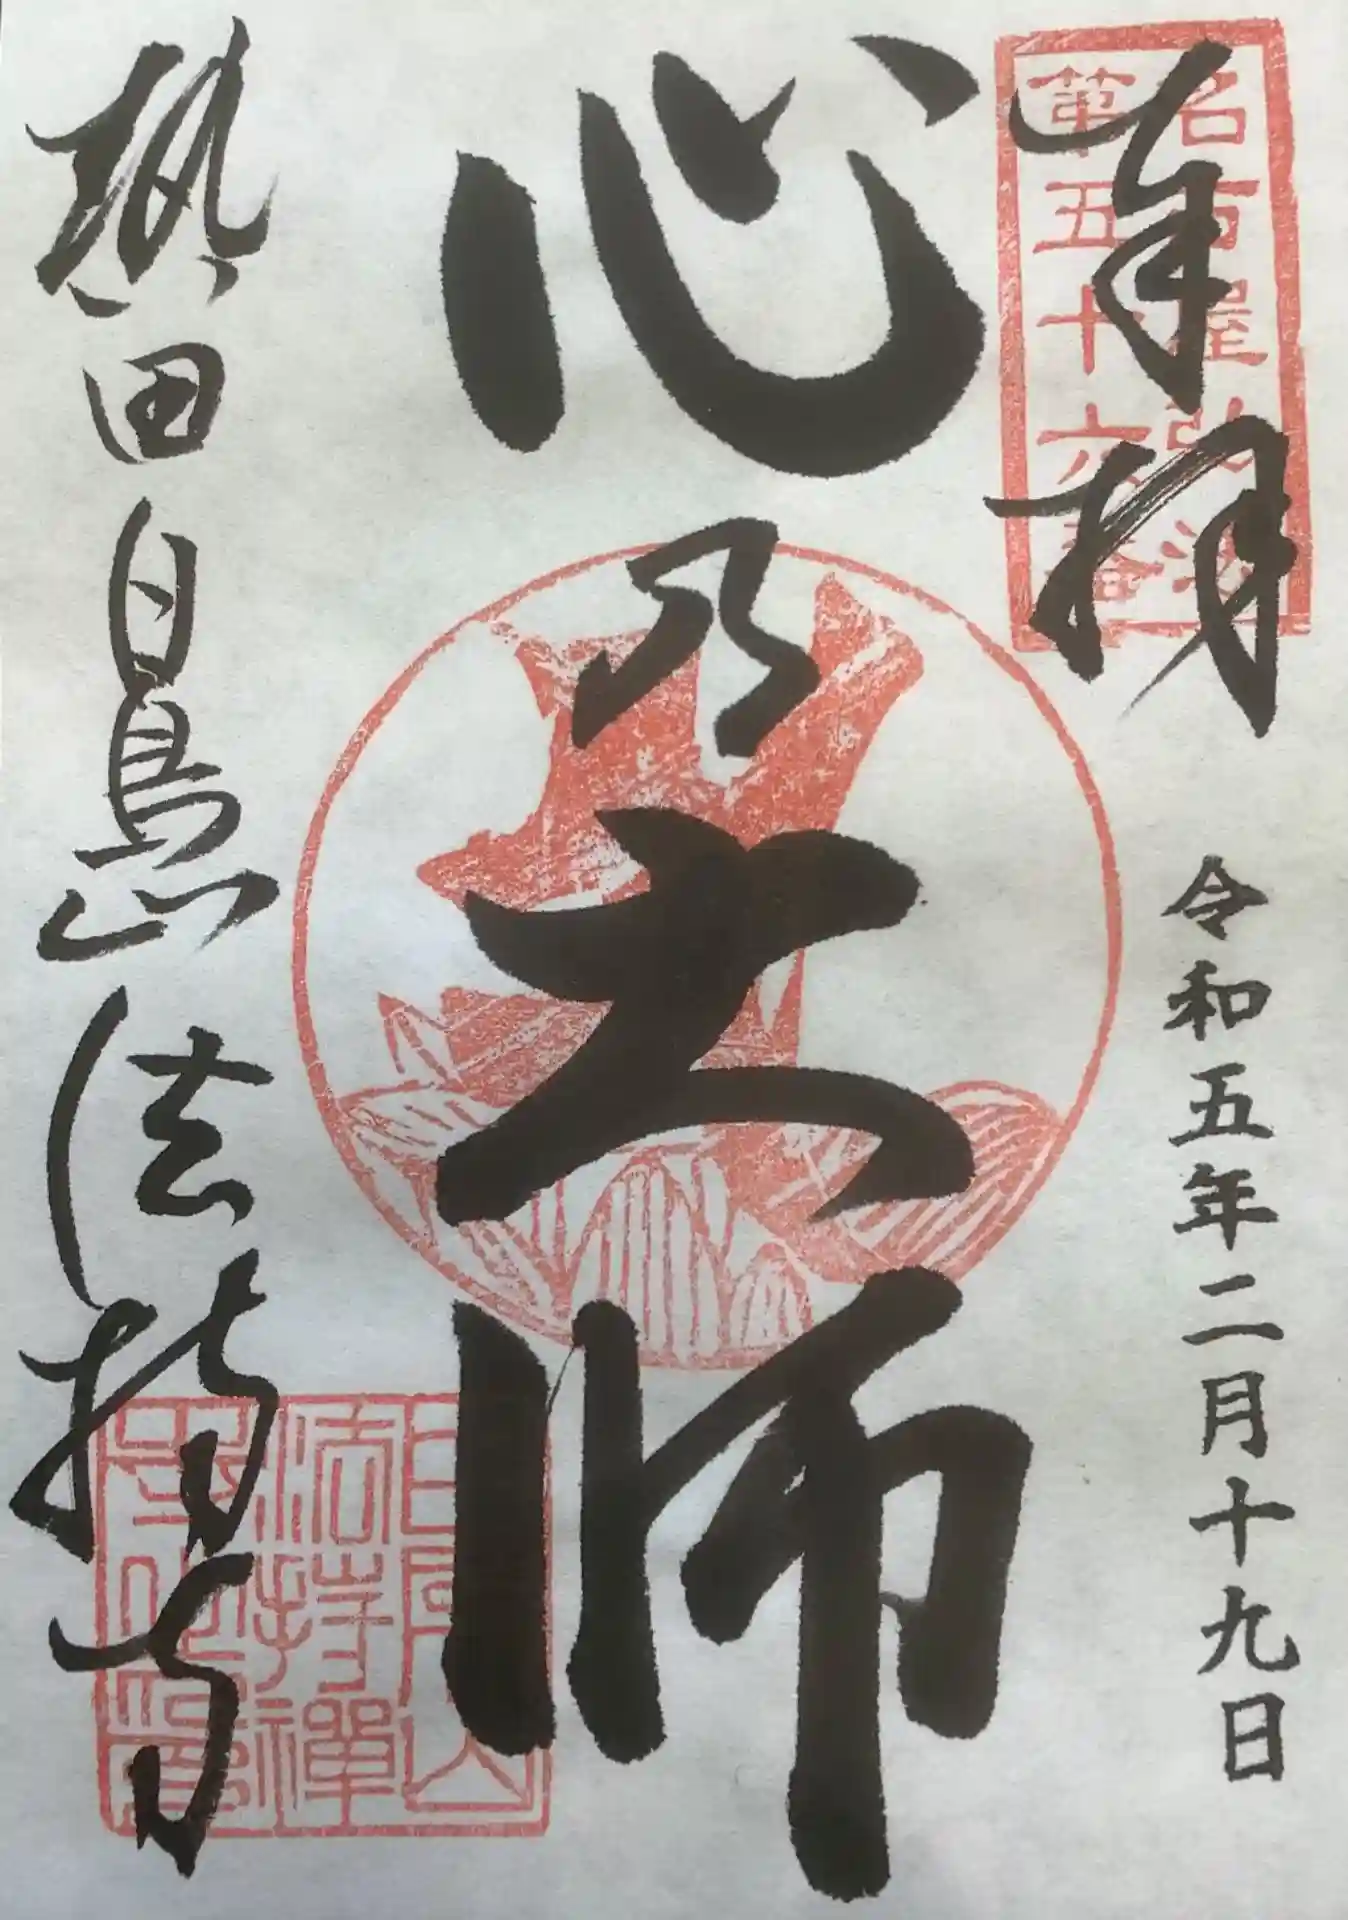 奉拝
名古屋弘法
第五十六番
令和五年二月十九日
心乃大師
熱田白鳥山法持寺
白鳥山
法持禅
寺之印